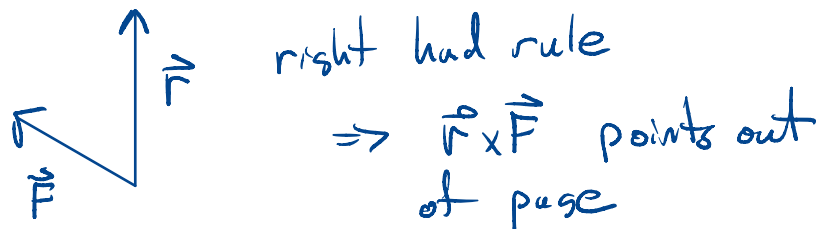 r⃗
F⃗
right had rule
⇒ r⃗ × F⃗ points out
of page